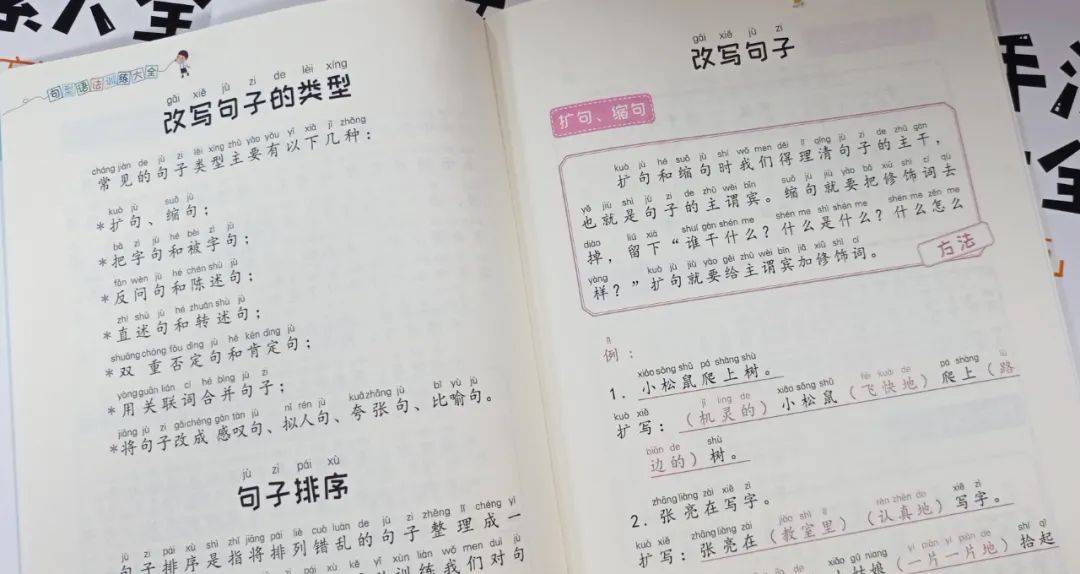 句型语法训练大全
gǎi xiě jù zi de lèi xíng
改写句子的类型
cháng jiàn de jù zi lèi xíng zhǔ yào yǒu yǐ xià jǐ zhǒng
常见的句子类型主要有以下几种：
kuò jù suō jù
*扩句、缩句；
bǎ zì jù hé bèi zì jù
*把字句和被字句；
fǎn wèn jù hé chén shù jù
*反问句和陈述句；
zhí shù jù hé zhuǎn shù jù
*直述句和转述句；
shuāng chóng fǒu dìng jù hé kěn dìng jù
*双重否定句和肯定句；
yòng guān lián cí hé bìng jù zi
*用关联词合并句子；
jiāng jù zi gǎi chéng gǎn tàn jù nǐ rén jù kuā zhāng jù bǐ yù jù
*将句子改成 感叹句、拟人句、夸张句、比喻句。
jù zi pái xù
句子排序
jù zi pái xù shì zhǐ jiāng pái liè cuò luàn de jù zi zhěng lǐ chéng yí
句子排序是指将排列错乱的句子整理成一
gǎi xiě jù zi
改写句子
扩句、缩句
kuò jù hé suō jù shí wǒ men děi lǐ qīng jù zi de zhǔ gàn
扩句和缩句时我们得理清句子的主干，
yě jiù shì jù zi de zhǔ wèi bīn suō jù jiù yào bǎ xiū shì cí qù
也就是句子的主谓宾。缩句就要把修饰词去
diào liú xià shuí gàn shén me shén me shì shén me shén me zěn me
掉，留下“谁干什么？什么是什么？什么怎么
yàng kuò jù jiù yào gěi zhǔ wèi bīn jiā xiū shì cí
样？”扩句就要给主谓宾加修饰词。
方法
lì
例：
xiǎo sōng shǔ pá shàng shù
1. 小松鼠爬上树。
kuò xiě jī líng de xiǎo sōng shǔ fēi kuài de pá shàng lù
扩写：（机灵的）小松鼠（飞快地）爬上（路
biān de shù
边的）树。
zhāng liàng zài xiě zì
2. 张亮在写字。
kuò xiě zhāng liàng zài jiào shì lǐ rèn zhēn de xiě zì
扩写：张亮在（教室里）（认真地）写字。
xiǎo gū niang yí piàn yí piàn de shí qǐ
（一片一片地）拾起